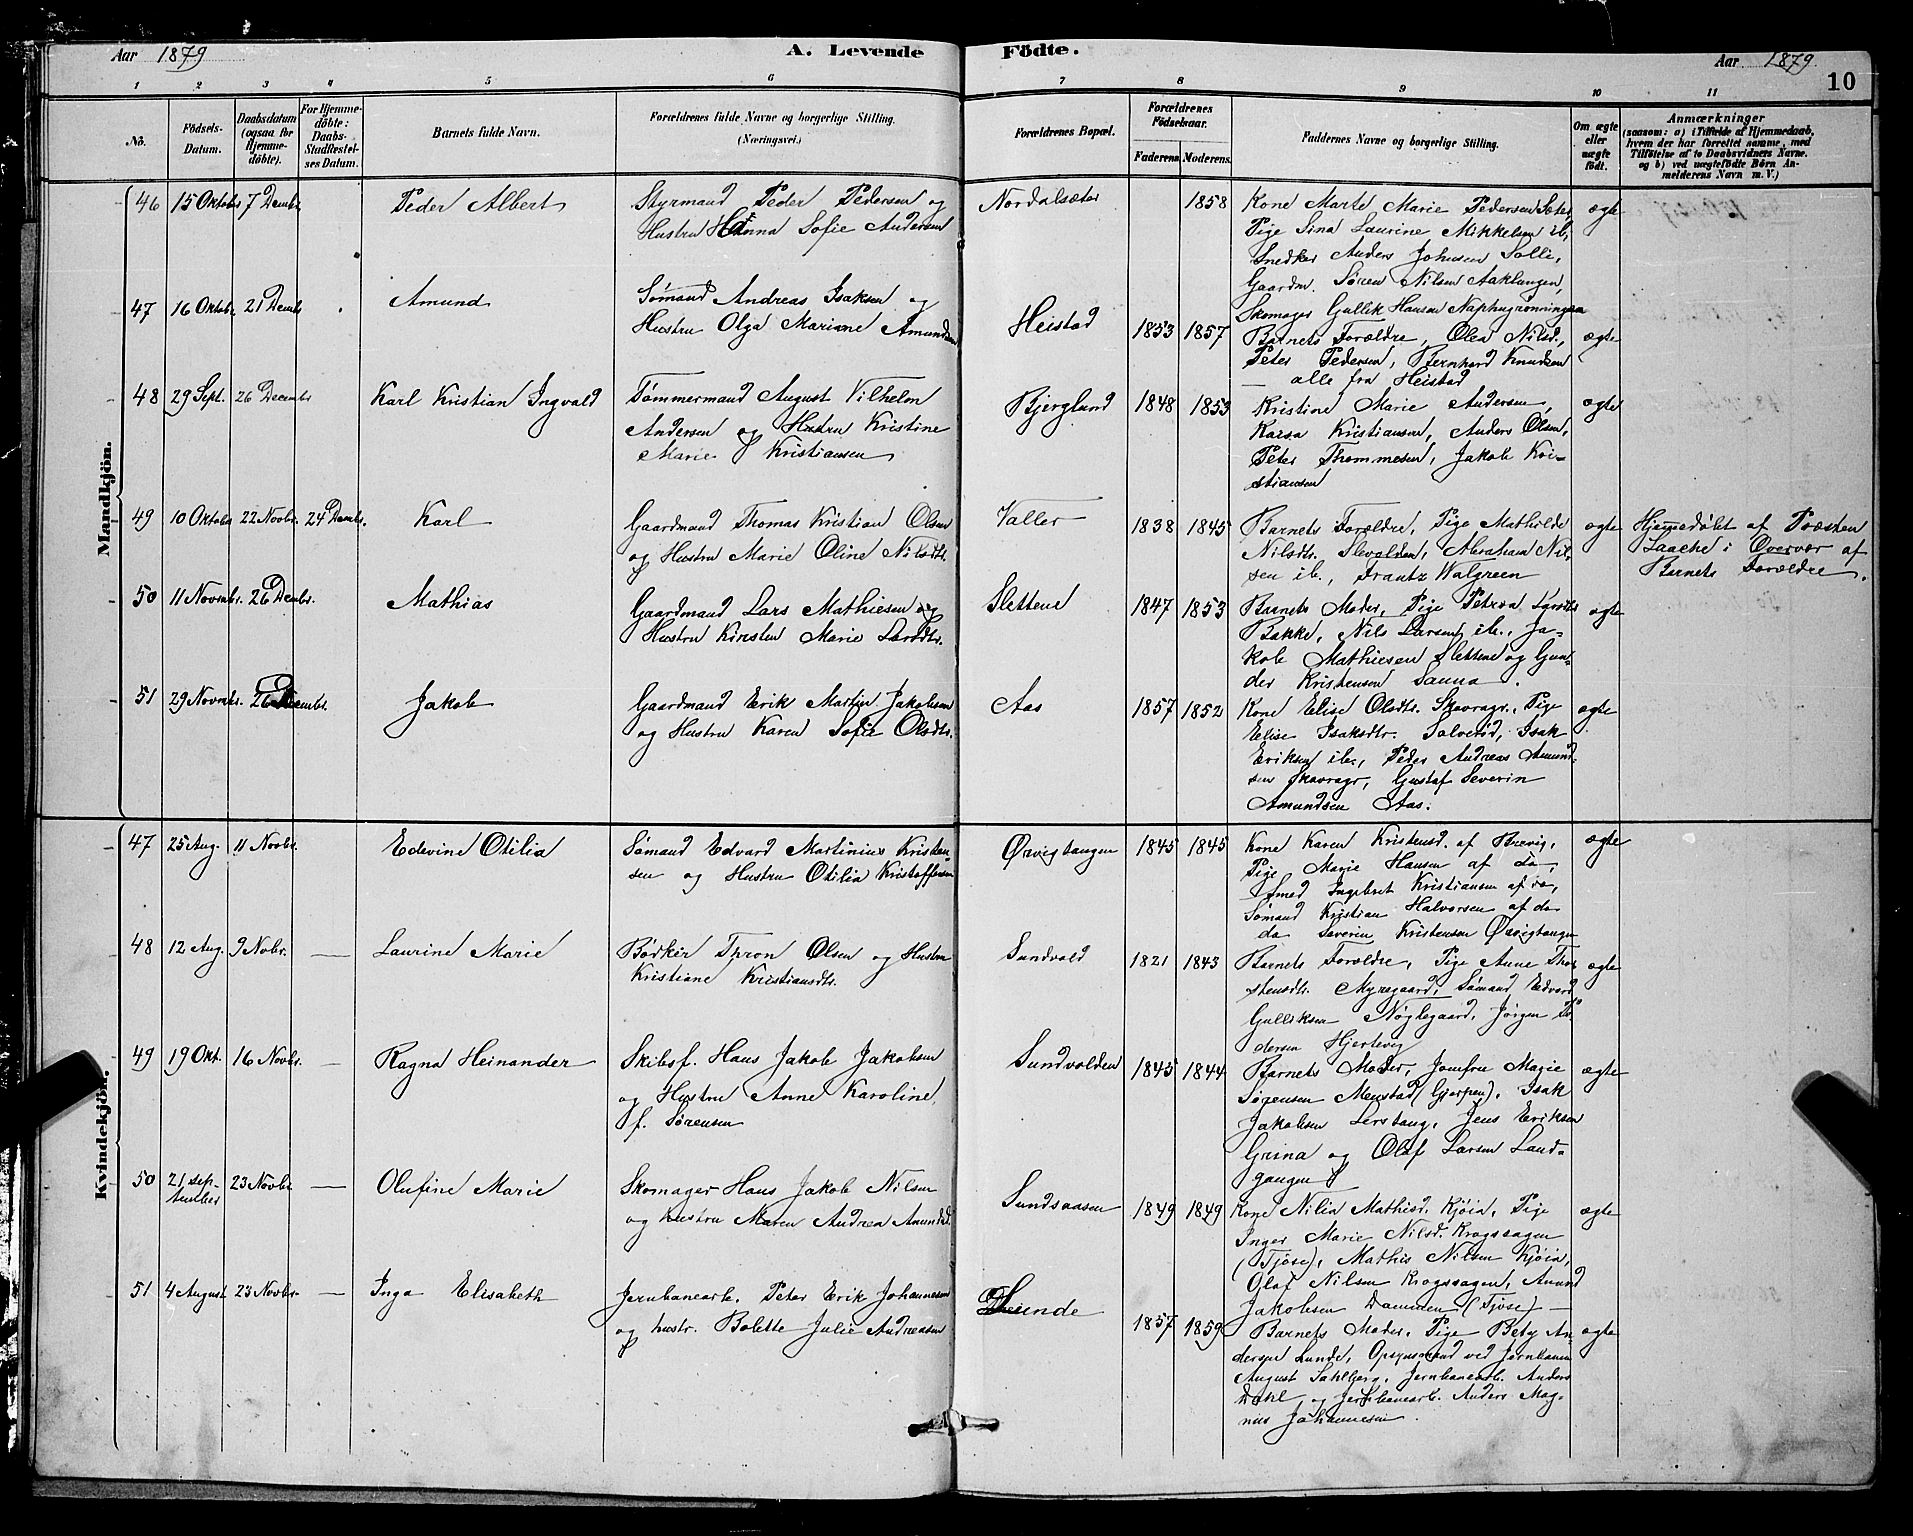 Aar 1879
A. Levende
Födte.
Aar 1879
10
1 2 3 4 5 6 7 8 9 10 11
No.
Födsels-
Datum.
Daabsdatum
(ogsaa for
Hjemme-
döbte).
For Hjemme-
döbte:
Daabs-
Stadfæstel-
ses Datum.
Barnets fulde Navn.
Forældrenes fulde Navne og borgerlige Stilling.
(Næringsvei.)
Forældrenes Bopæl.
Forældrenes
Födselsaar.
Faderens Moderens
Faddernes Navne og borgerlige Stilling.
Om ægte
eller
uægte
födt.
Anmærkninger
(saasom: a) i Tilfælde af Hjemmedaab,
hvem der har forrettet samme, med
Tilföielse af to Daabsvidners Navne,
og b) ved uægtefödte Börn An-
melderens Navn m. V.)
Mandkjön.
46 15 Oktobr 7 Decembr
Peder Albert
Styrmand Peder Pedersen og
Hustru Hanna Sofie Andersen
Nordalsæter
1858
Kone Marte Marie Pedersen Sæter
Pige Sina Laurine Mikkelsen ib,
Snedker Anders Johnsen Solli,
Gaardm. Søren Nilsen Aaklungen,
Skomager Gullik Hansen Naphugrønningen
ægte
47 16 Oktobr 21 Decembr
Amund
Sømand Andreas Isaksen og
Hustru Olga Mariane Amundsen
Heistad
1853 1857
Barnets Forældre, Olea Nilsd.,
Peter Pedersen, Bernhard Knudsen
— alle fra Heistad
ægte
48 29 Sept. 26 Decembr
Karl Kristian Ingvald
Tømmermand August Vilhelm
Andersen og Hustru Kristine
Marie Kristiansen
Bjerglund
1848 1853
Kristine Marie Andersen,
Kaisa Kristiansen, Anders Olsen,
Peter Thommesen, Jakob Kri-
stiansen
ægte
49 10 Oktobr 22 Novbr. 24 Decmbr.
Karl
Gaardmand Thomas Kristian Olsen
og Hustru Marie Oline Nilsdtr.
Valler
1838 1845
Barnets Forældre, Pige Mathilde
Nilsdtr. Flevolden, Abraham Nil-
sen ib., Frantz Walgreen
ægte
Hjemmedøbt af Præsten
Laache i Overvær af
Barnets Forældre.
50 11 Novmbr. 26 Decmbr.
Mathias
Gaardmand Lars Mathiesen og
Hustru Kirsten Marie Larsdtr.
Slettene
1847 1853
Barnets Moder, Pige Petrea Larsdtr
Bakke, Nils Larsen ib., Ja-
kob Mathiesen Slettene og Gun-
der Kristensen Sauna.
ægte
51 29 Novmbr. 26 Decembr.
Jakob
Gaardmand Erik Martin Jakobsen
og Hustru Karen Sofie Olsdtr.
Aas
1857 1852
Kone Elise Olsdtr. Skavrager, Pige
Elise Isaksdtr. Salverød, Isak
Eriksen ib., Peder Andreas Amund-
sen Skavrager, Gustaf Severin
Amundsen Aas.
ægte
Kvindekjön.
47 25 Aug. 11 Novbr.
Edevine Otilia
Sømand Edvard Martinius Kristen-
sen og Hustru Otilia Kristoffersen
Ørvigtangen
1845 1845
Kone Karen Kristensd. af Brevig,
Pige Marie Hansen af do,
Smed Ingebret Kristiansen af do,
Sømand Kristian Halvorsen af do
do Severin Kristensen Ørvigtangen
ægte
48 12 Aug. 9 Novbr. —
Laurine Marie
Bødker Thron Olsen og Hustru
Kristiane Kristiansdtr.
Sundvold
1821 1843
Barnets Forældre, Pige Anne Thor-
stensdtr. Myregaard, Sømand Edvard
Gulliksen Nøglegaard, Jørgen Pe-
dersen Hjertevig
ægte
49 19 Okt. 16 Novbr. —
Ragna Heinander
Skibsf. Hans Jakob Jakobsen
og Hustru Anne Karoline,
f. Sørensen
Sundvolden
1845 1844
Barnets Moder, Jomfru Marie
Sørensen Menstad (Gjerpen), Isak
Jakobsen Lerstang, Jens Eriksen
Grina og Olaf Larsen Land-
gangen
ægte
50 21 sep-
tember 23 Novbr —
Olufine Marie
Skomager Hans Jakob Nilsen
og Hustru Maren Andrea Amundsd.
Sundsaasen
1849 1849
Kone Nilia Mathisd. Kjøia, Pige
Inger Marie Nilsd. Krogssagen
(Tjöse), Mathis Nilsen Kjøia,
Olaf Nilsen Krogssagen, Amund
Jakobsen Dammen (Tjöse) —
ægte
51 4 August 23 Novbr. —
Inga Elisabeth
Jernbanearb. Peter Erik Johannesen
og hustr. Bolette Julie Andreasen
Lunde
1857 1859
Barnets Moder, Pige Bety An-
dersen Lunde, Opsynsmand ved Jernbanen
August Sahlberg, Jernbanearb. Anders
Dahl og Jernbanearb. Anders Mag-
nus Johannesen.
ægte